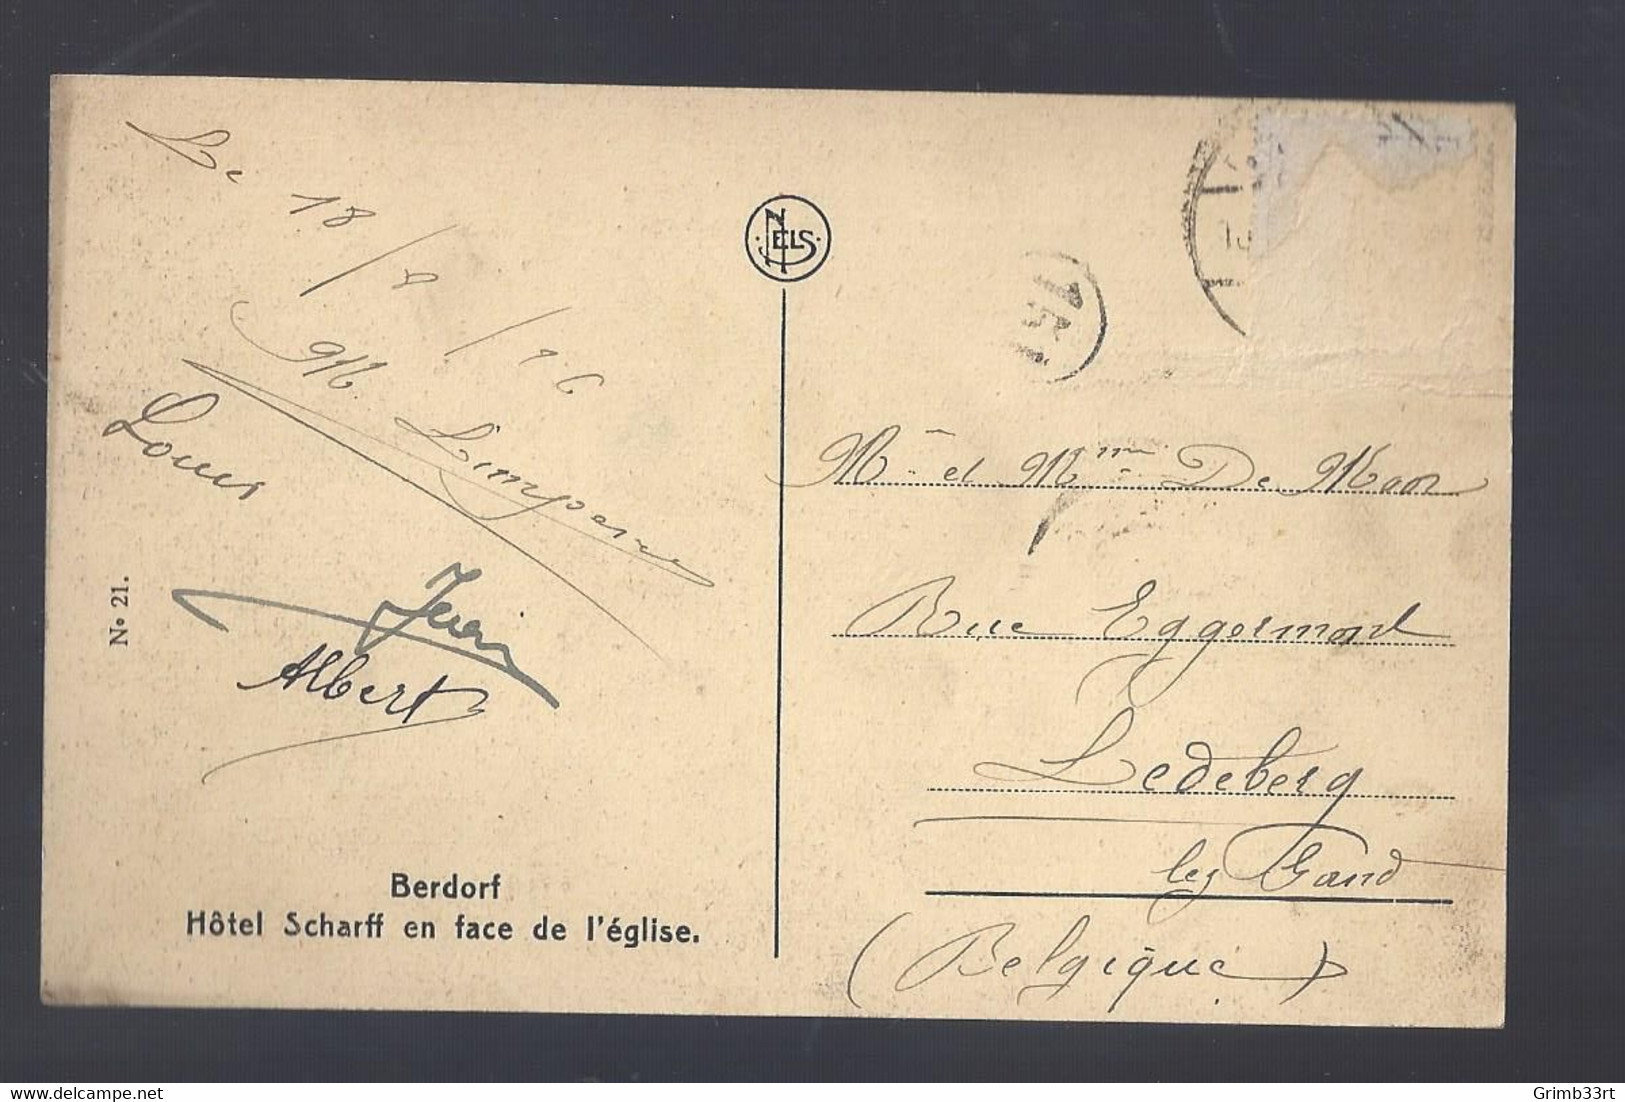 Le 18/8/26
M. Limpens
Louis
Jean
Albert
N° 21.
Berdorf
Hôtel Scharff en face de l'église.
NELS
15
Mr et Mme De Moor
Rue Eggermont
Ledeberg
lez Gand
(Belgique)
delcampe.net
Grimb33rt